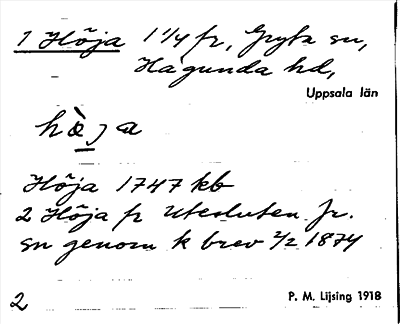 1 Höja 1 1/4 fr, Gryta sn,
Hagunda hd,
Uppsala län
hæ̀ja
Höja 1747 kb
2 Höja fr Utesluten fr.
sn genom k brev 2/2 1874
2
P. M. Lijsing 1918